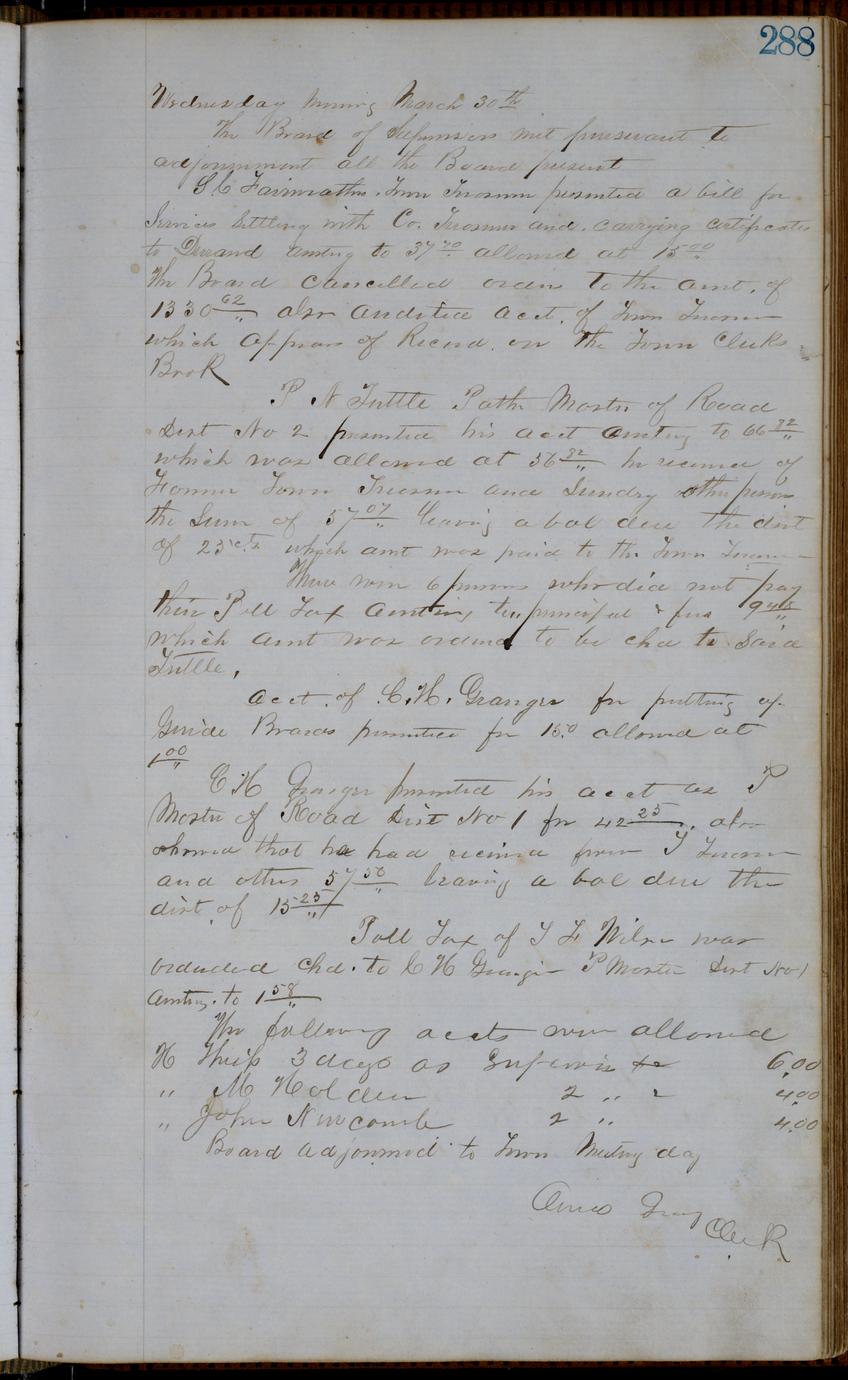 288
Wednesday Morning March 30th
The Board of Supervisors met pursuant to
adjournment all the Board present
Town Treasurer presented a bill for
Services Settling with Co. Treasurer and carrying certificates
to Durand amtng to allowed at 15 00
The Board cancelled orders to the amt. of
1330 62 also audited acct. of Town Treasurer
which appears of Record on the Town Clerks
Book
P N Tuttle Path Master of Road
Dist No 2 presented his acct amting to 66 82
which was allowed at 56 82 he received of
Former Town Treasurer and Sundry other persons
the Sum of 57 07 leaving a bal due the dist
of 25 cts which amt was paid to the Town Treasurer
There were 6 persons who did not pay
their Poll Tax amting to, principal & fees 9 48
which amt was ordered to be chd to Said
Tuttle,
acct. of C. H. Granger for putting up
Guide Boards presented for 15.0 allowed at
1 00
C H Granger presented his acct as P
Master of Road Dist No 1 for 42 25 also
showed that he had received from T Treasurer
and others 57 50 leaving a bal due the
dist. of 15 25
Poll Tax of Wilson was
ordered chd. to C H Granger P Master Dist No 1
amtng. to 1 58
The following accts were allowed
H 3 days as Supervisor 6.00
" M Holden 2 " " 4.00
" John Newcomb 2 " 4.00
Board adjourned to Town Meeting day
Amos Gray
Clerk